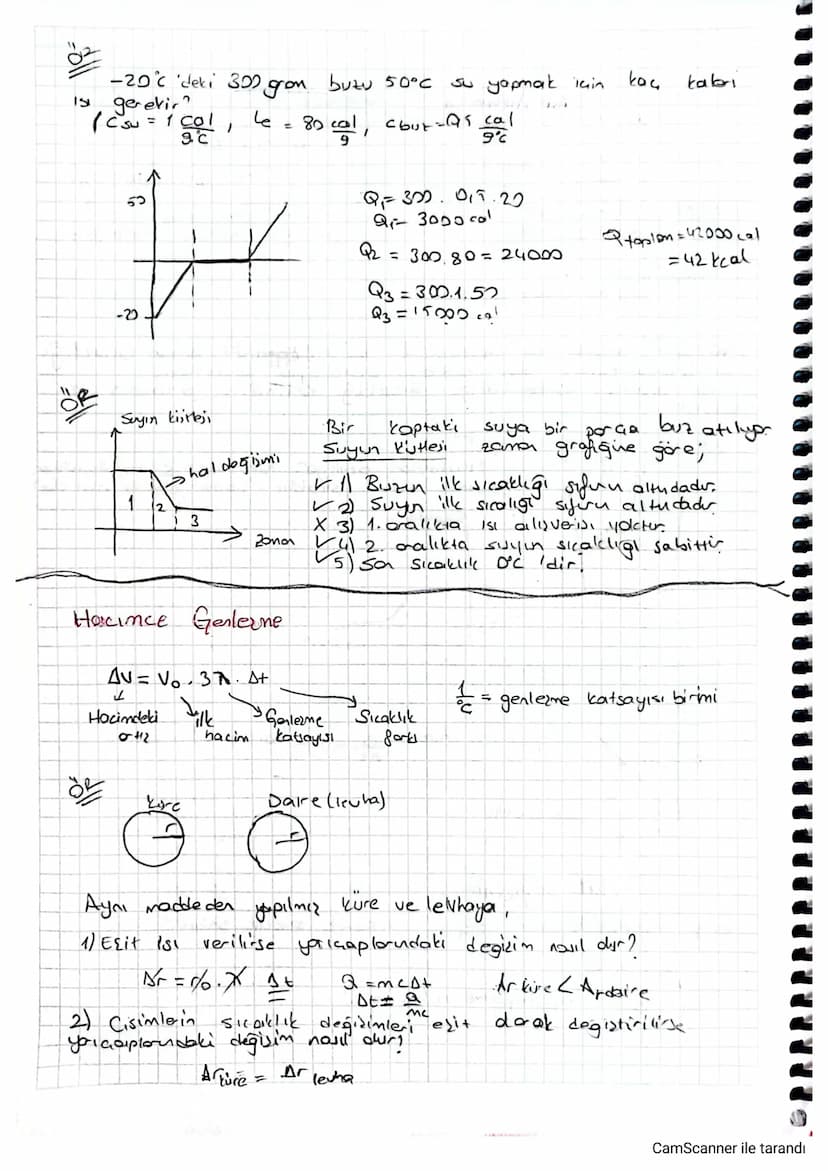 Ör
-20°C 'deki 300 gram buzu 50°C su yapmak için kaç kalori
ısı gerekir?
(Csu = 1 cal/g°C, Le = 80 cal/g, cbuz = 0,5 cal/g°C
50
-20
Q1 = 300 . 0,5 . 20
Q1 = 3000 cal
Q2 = 300.80 = 24000
Q3 = 300.1.50
Q3 = 15000 cal
Qtoplam = 42000 cal
= 42 kcal
Ör
Suyun kütlesi
hal değişimi
1 2 3
zaman
Bir kaptaki suya bir parça buz atılıyor
Suyun Kütlesi zaman grafiğine göre;
✓ 1) Buzun ilk sıcaklığı sıfırın altındadır.
✓ 2) Suyun ilk sıcaklığı sıfırın altındadır
X 3) 1. aralıkta ısı alışverişi yoktur.
✓ 4) 2. aralıkta suyun sıcaklığı sabittir.
✓ 5) Son sıcaklık 0°C 'dir.
Hacimce Genleşme
ΔV = V0 . 3λ . Δt
Hacimdeki artış
ilk hacim
Genleşme katsayısı
Sıcaklık farkı
1/°C = genleşme katsayısı birimi
Ör
Küre
r
Daire (levha)
r
Aynı maddeden yapılmış küre ve levhaya,
1) Eşit ısı verilirse yarıçaplarındaki değişim nasıl olur?
Δr = r0 . λ . Δt
Q = mcΔt
Δt = Q/mc
Δr küre < Δr daire
2) Cisimlerin sıcaklık değişimleri eşit olarak değiştirilirse
yarıçaplarındaki değişim nasıl olur?
Δr küre = Δr levha
CamScanner ile tarandı